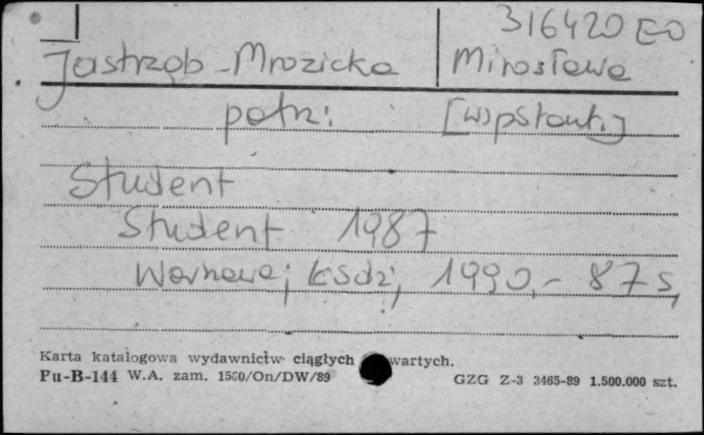 316420 EO
Jastrząb-Mrozicka Mirosława
patrz: [współaut.]
Student
Student 1987
Warszawa; 1990, - 87 s,
Karta katalogowa wydawnictw ciągłych wartych.
Pu-B-144 W.A. zam. 1560/On/DW/89
GZG Z-3 3465-89 1.500.000 szt.